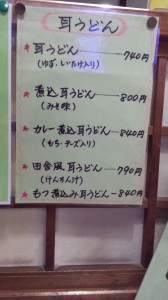 耳うどん
★ 耳うどん 740円
(ゆば、しいたけ入り)
★ 煮込耳うどん 800円
(みそ味)
★ カレー煮込耳うどん 840円
(もち・チーズ入り)
★ 田舎風耳うどん 790円
(けんちん汁)
★ もつ煮込み耳うどん 840円